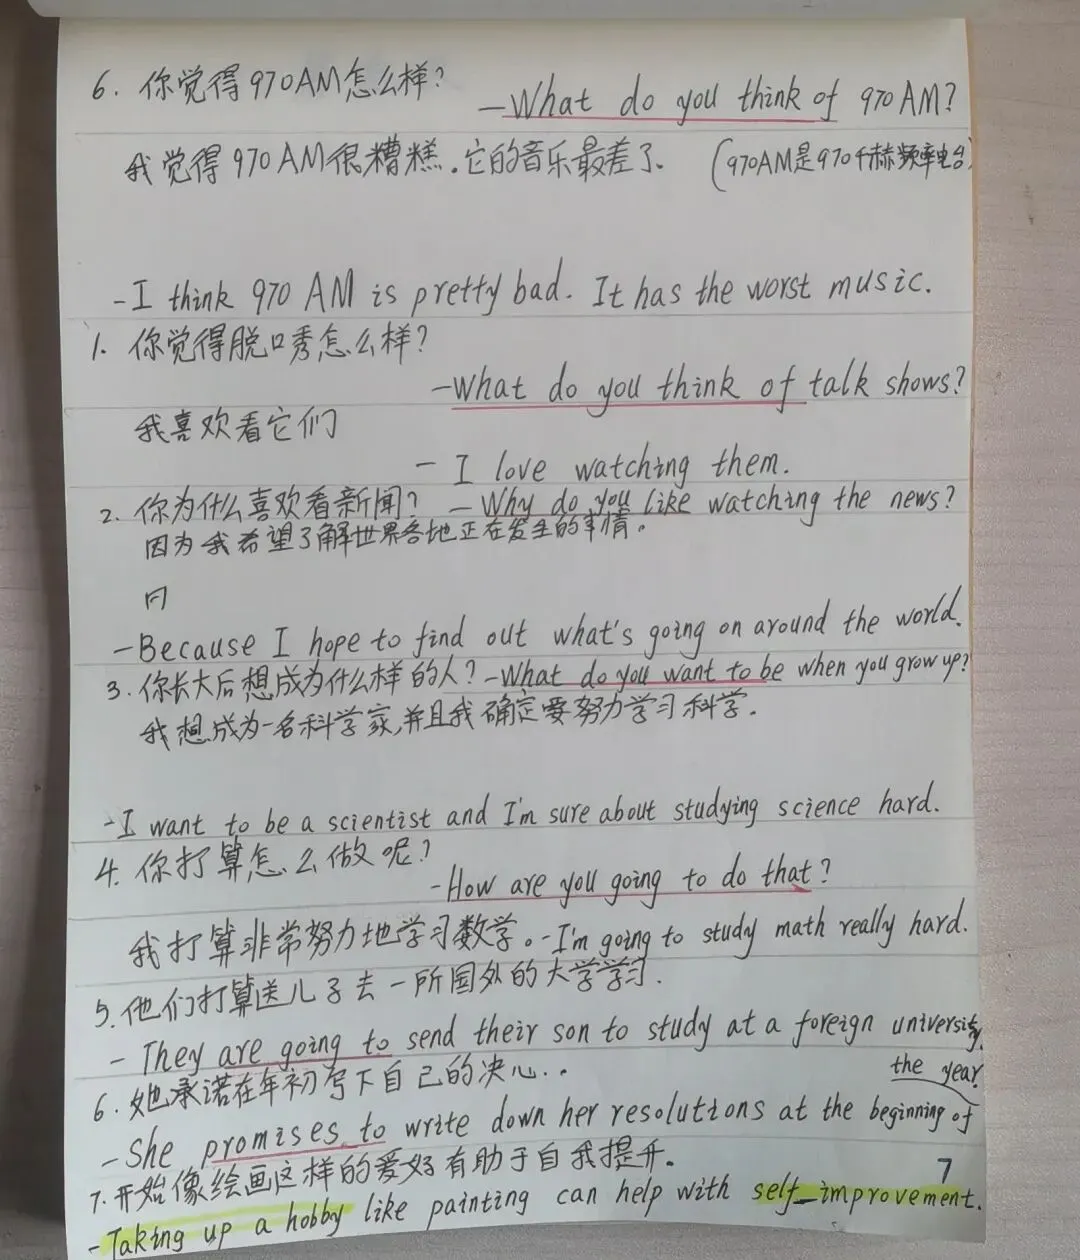 6. 你觉得970AM怎么样?
-What do you think of 970AM?
我觉得970AM很糟糕.它的音乐最差了. (970AM是970千赫频率电台)
-I think 970 AM is pretty bad. It has the worst music.
1. 你觉得脱口秀怎么样?
-What do you think of talk shows?
我喜欢看它们
- I love watching them.
2. 你为什么喜欢看新闻? - Why do you like watching the news?
因为我希望了解世界各地正在发生的事情。
-Because I hope to find out what's going on around the world.
3. 你长大后想成为什么样的人?-What do you want to be when you grow up?
我想成为一名科学家,并且我确定要努力学习科学.
-I want to be a scientist and I'm sure about studying science hard.
4. 你打算怎么做呢?
-How are you going to do that?
我打算非常努力地学习数学。-I'm going to study math really hard.
5. 他们打算送儿子去一所国外的大学学习.
- They are going to send their son to study at a foreign university.
6. 她承诺在年初写下自己的决心..
- She promises to write down her resolutions at the beginning of
the year.
7. 开始像绘画这样的爱好有助于自我提升。
-Taking up a hobby like painting can help with self-improvement.
7